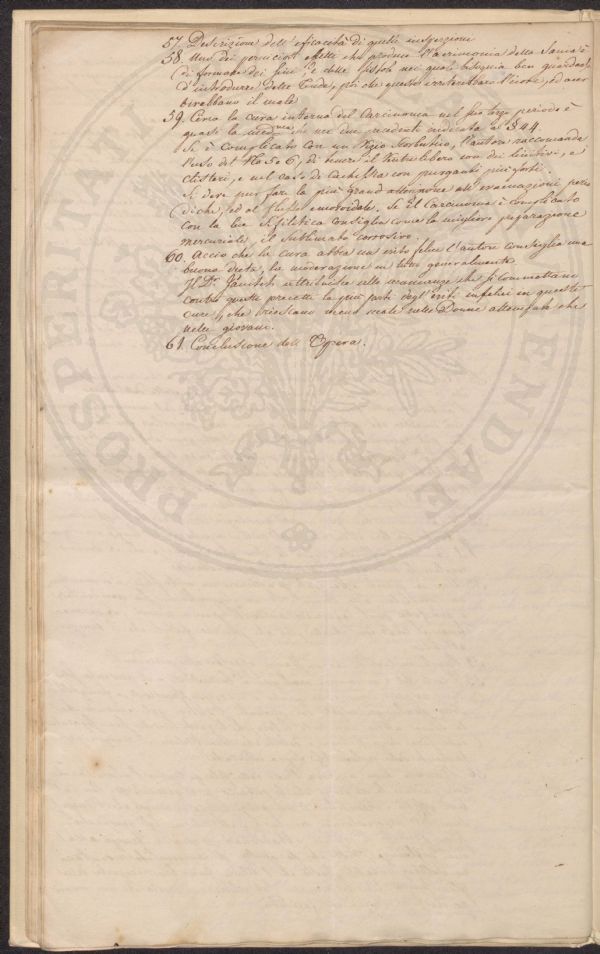 57. Descrizione dell' efficacità di questa suspensione
58. Uno dei perniciosi effetti che produce l'acrimonia della Sanie è
di formare dei seni, e delle fistole nei quali bisogna ben guardarsi
d'introdurre delle Tende, poi che queste irriterebbero l'icore, ed acer
birebbano il male
59. Circa la cura interna del Carcinoma nel suo terzo periodo è
quasi la medesima che nei due precedenti indicata al § 44.
Se è complicato con un Vizio Scorbutico, l'autore raccomanda
l'uso del No 5 e 6, di tenere il ventre libero con dei lenitivi, e
clisteri, e nel caso di Cachessia con purganti più forti.
Si deve pur fare la più grand attenzione all' evacuazioni perio
diche, ed al flusso emoroidale, Se il Carcinoma è complicato
con la lue Sifilitica consiglia come la migliore preparazione
mercuriale, il Sublimato corrosivo.
60. Acciò che la cura abbia un esito felice l'autore consiglia una
buona dieta, la moderazione in tutto generalmente
Il Dr. attribuisce alle mancanze che si commettano
contro questi precetti la più parte degl' esiti infelici in queste
cure, che riescano meno male nelle Donne attempate che
nelle giovani.
61. Conclusione dell' Opera.
PROSPERITATI ENDAE